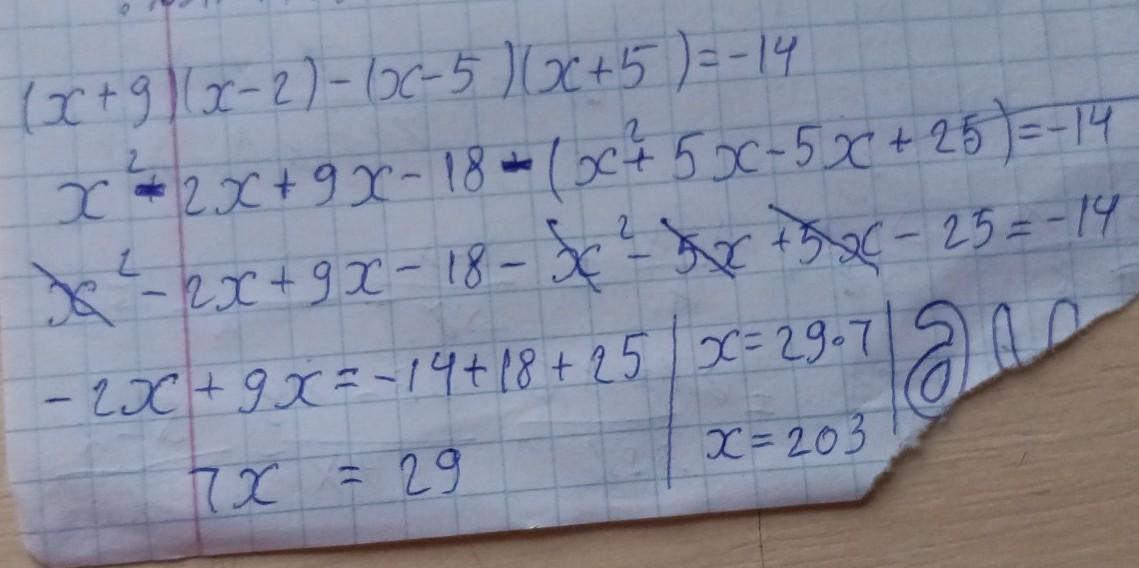 (x+9)(x-2)-(x-5)(x+5)=-14
x²-2x+9x-18-(x²+5x-5x+25)=-14
x²-2x+9x-18-x²-5x+5x-25=-14
-2x+9x=-14+18+25
7x = 29
x=29·7
x=203